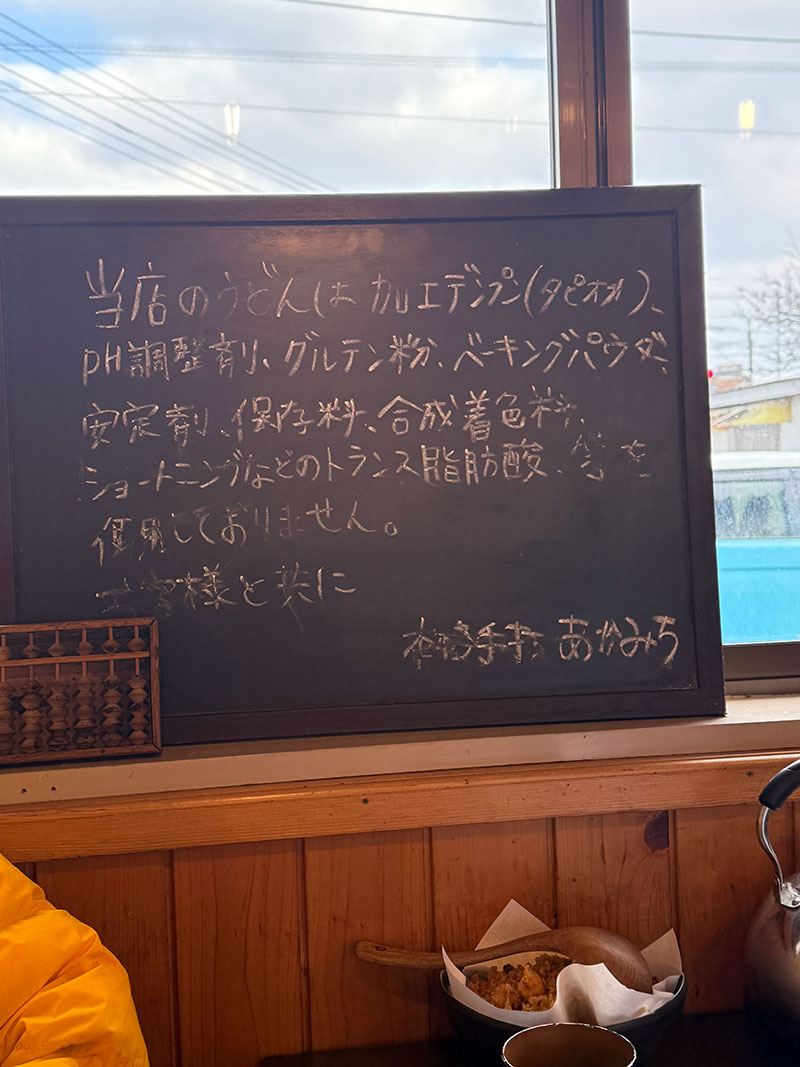 当店のうどんは加工デンプン(タピオカ)、
PH調整剤、グルテン粉、ベーキングパウダー、
安定剤、保存料、合成着色料、
ショートニングなどのトランス脂肪酸、等を
使用しておりません。
お客様と共に
本格手打 あかみち